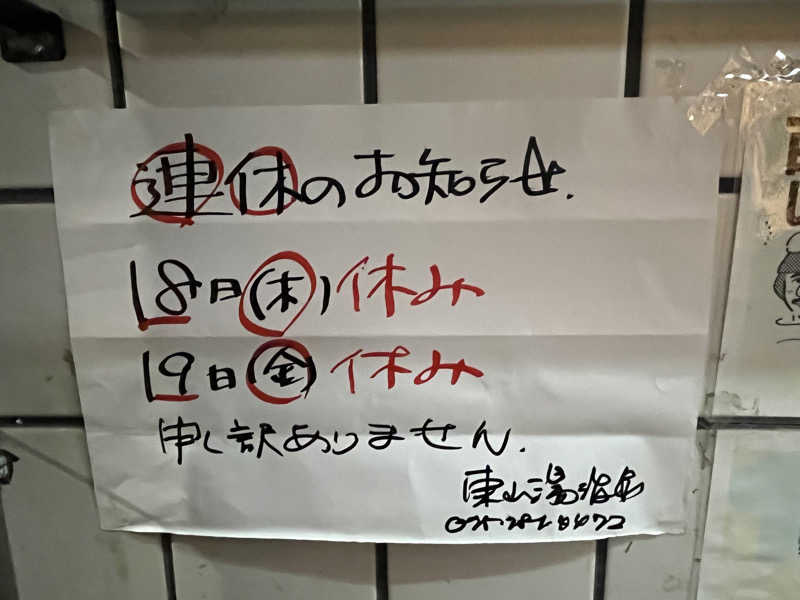 連休のお知らせ.
18日(木)休み
19日(金)休み
申し訳ありません.
東山湯